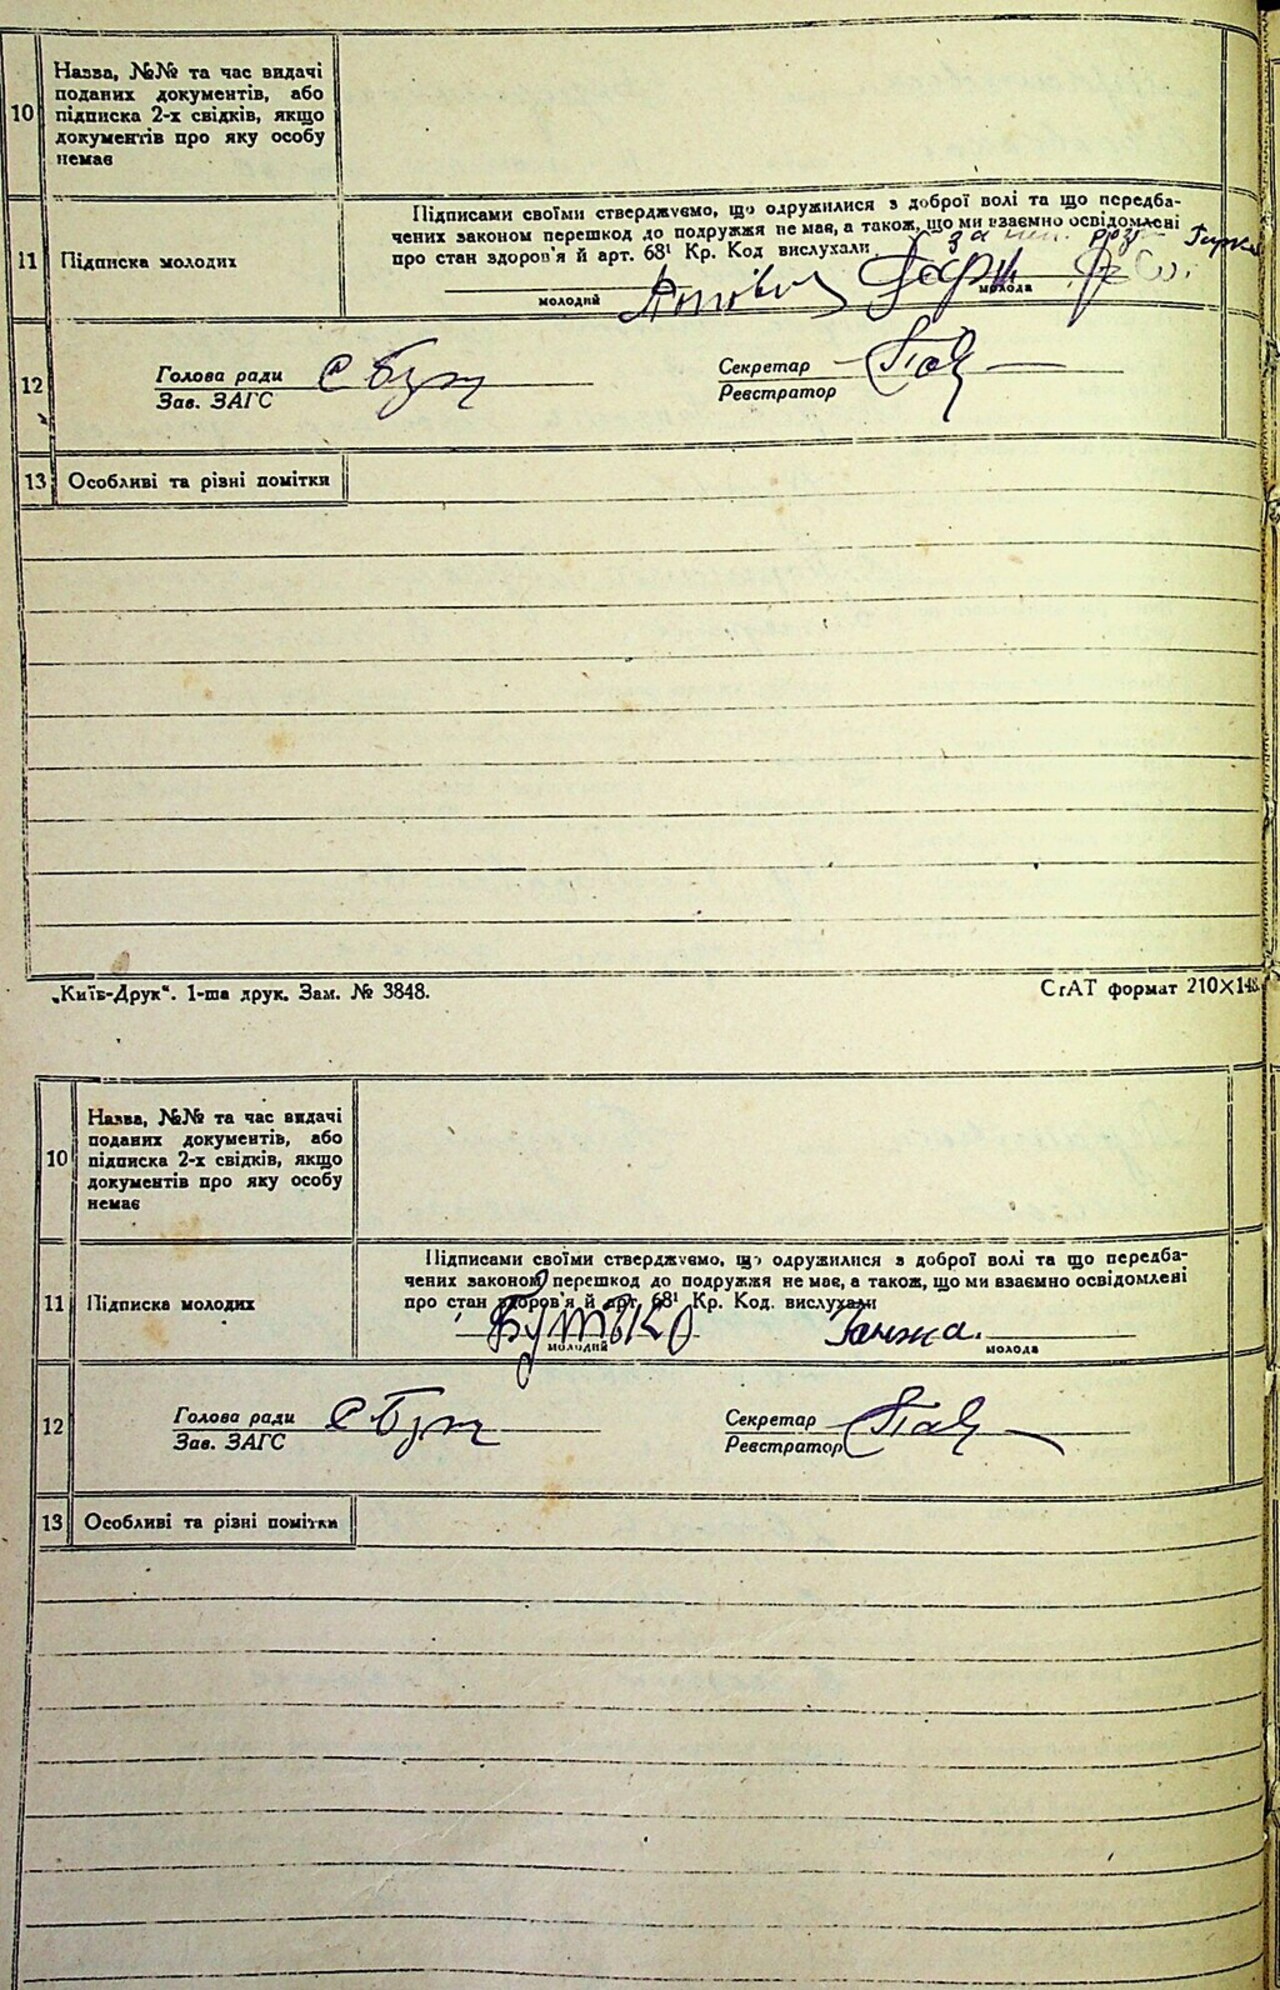 10
Назва, №№ та час видачі
поданих документів, або
підписка 2-х свідків, якщо
документів про яку особу
немає
11
Підписка молодих
Підписами своїми стверджуємо, що одружилися з доброї волі та що передба-
чених законом перешкод до подружжя не має, а також, що ми взаємно освідомлені
про стан здоров'я й арт. 68¹ Кр. Код вислухали
за
молодий
молода
12
Голова ради
Зав. ЗАГС
Секретар
Реєстратор
13
Особливі та різні помітки
„Київ-Друк“. 1-ша друк. Зам. № 3848.
СтАТ формат 210×148
10
Назва, №№ та час видачі
поданих документів, або
підписка 2-х свідків, якщо
документів про яку особу
немає
11
Підписка молодих
Підписами своїми стверджуємо, що одружилися з доброї волі та що передба-
чених законом перешкод до подружжя не має, а також, що ми взаємно освідомлені
про стан здоров'я й арт. 68¹ Кр. Код. вислухали
Бутько Ганжа.
молодий
молода
12
Голова ради
Зав. ЗАГС
Секретар
Реєстратор
13
Особливі та різні помітки